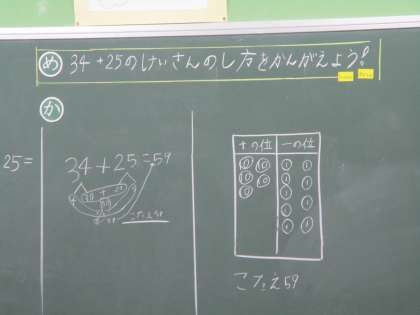 め 34+25のけいさんのし方をかんがえよう!
か
25=
34+25=59
こたえ59
十の位 一の位
10 10 1 1
10 10 1 1
10 1 1
1 1
1
こたえ59